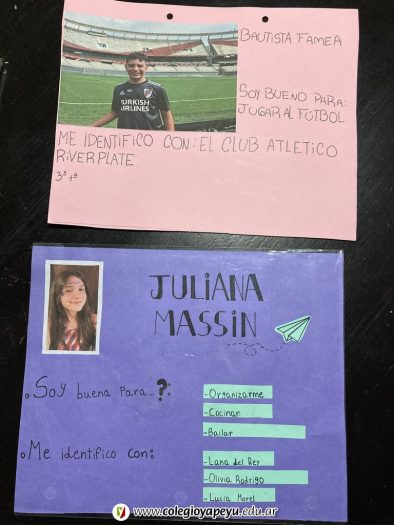 BAUTISTA FAMEA
SOY BUENO PARA:
JUGAR AL FÚTBOL
TURKISH
AIRLINES
ME IDENTIFICO CON: EL CLUB ATLETICO
RIVER PLATE
3º 4º
JULIANA
MASSIN
Soy buena para...?:
-Organizarme
-Cocinar
-Bailar
Me identifico con:
-Lana del Rey
-Olivia Rodrigo
-Lucía Morel
www.colegioyapeyu.edu.ar